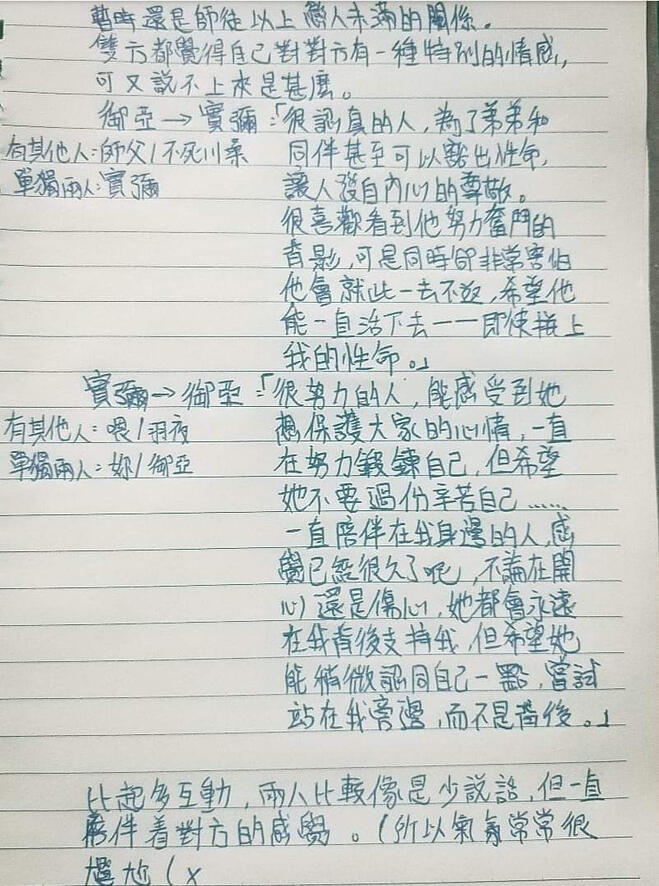 暫時還是師徒以上戀人未滿的關係。
雙方都覺得自己對對方有一種特別的情感,
可又說不上來是甚麼。
御亞→實彌:「很認真的人,為了弟弟和
有其他人:師父/不死川桑 同伴甚至可以豁出性命,
單獨兩人:實彌 讓人發自內心的尊敬。
很喜歡看到他努力奮鬥的
背影,可是同時卻非常害怕
他會就此一去不返,希望他
能一直活下去——即使拼上
我的性命。」
實彌→御亞:「很努力的人,能感受到她
有其他人:喂/羽夜 想保護大家的心情,一直
單獨兩人:妳/御亞 在努力鍛鍊自己,但希望
她不要過份辛苦自己……
一直陪伴在我身邊的人,感
覺已經很久了呢,不論在開
心還是傷心,她都會永遠
在我背後支持我,但希望她
能稍微認同自己一點,嘗試
站在我旁邊,而不是背後。」
比起多互動,兩人比較像是少說話,但一直
陪伴着對方的感覺。(所以氣氛常常很
尷尬(x